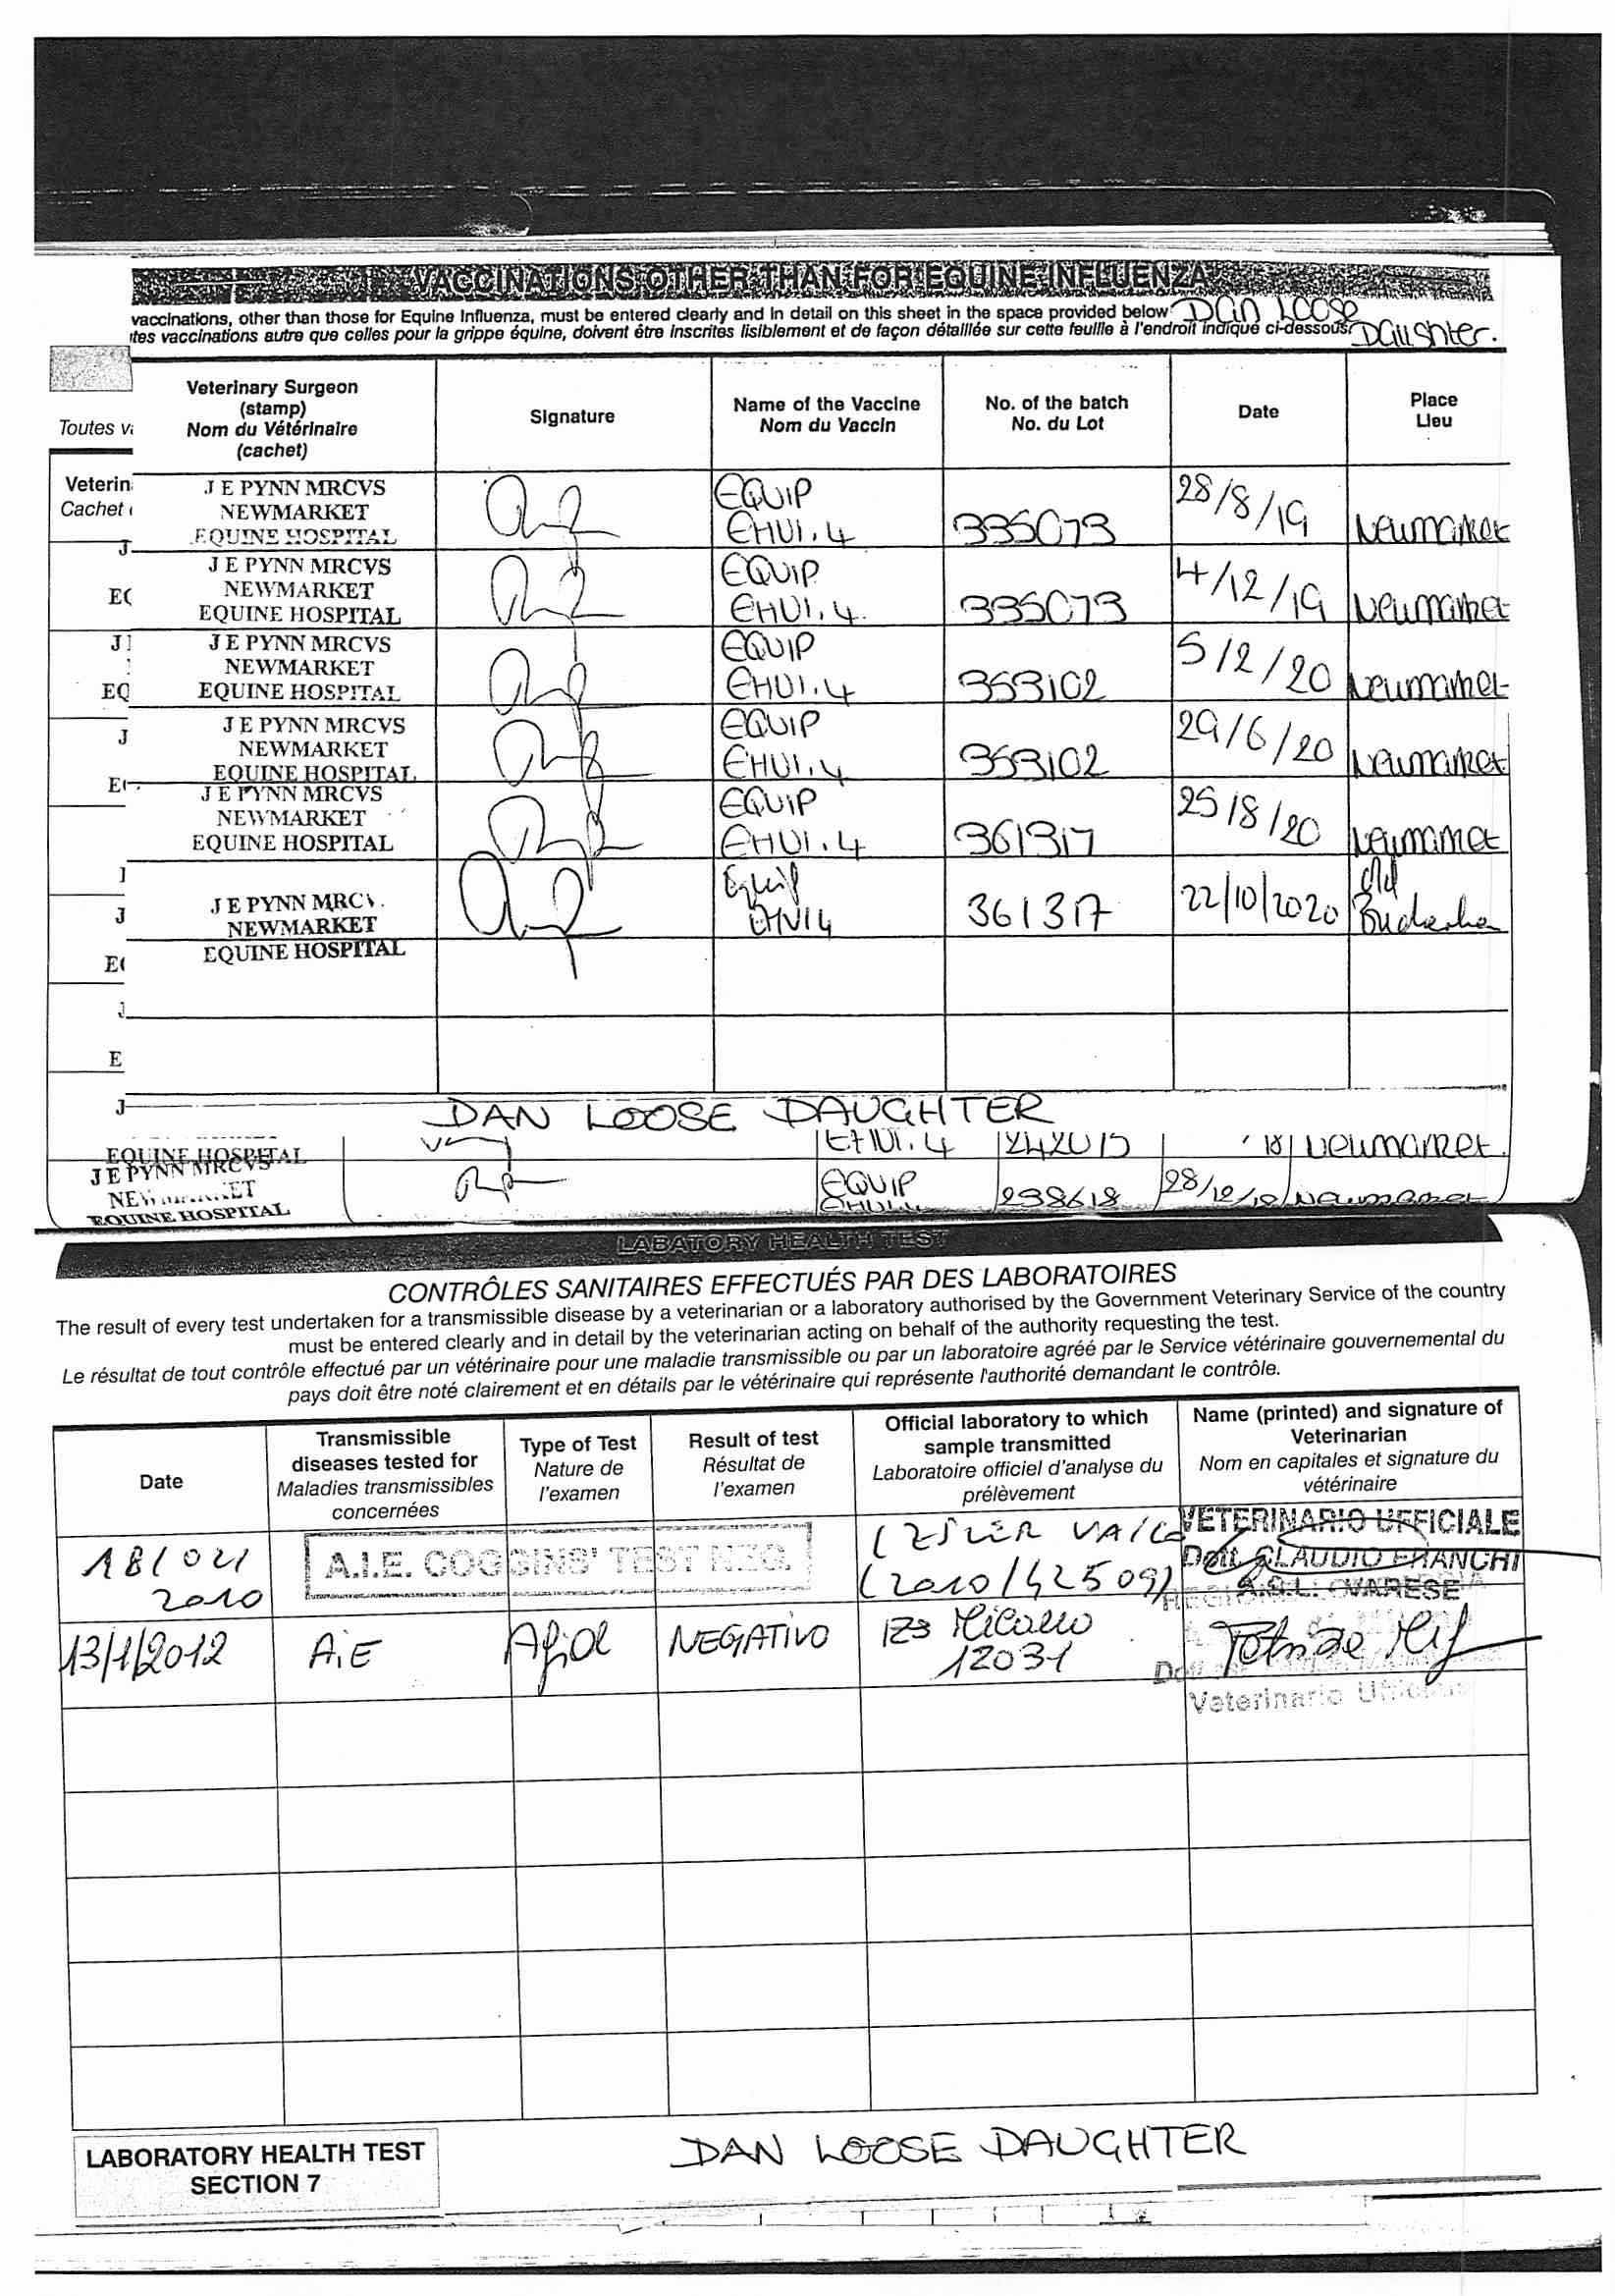 VACCINATIONS OTHER THAN FOR EQUINE INFLUENZA
vaccinations, other than those for Equine Influenza, must be entered clearly and in detail on this sheet in the space provided below Dan Loose
tes vaccinations autre que celles pour la grippe équine, doivent être inscrites lisiblement et de façon détaillée sur cette feuille à l'endroit indiqué ci-dessous. Daughter.
Toutes v
Veterin
Cachet
Veterinary Surgeon (stamp) Nom du Vétérinaire (cachet)
Signature
Name of the Vaccine Nom du Vaccin
No. of the batch No. du Lot
Date
Place Lieu
J E PYNN MRCVS NEWMARKET EQUINE HOSPITAL EQUIP EHV1.4 335073 28/8/19 Newmarket
J E PYNN MRCVS NEWMARKET EQUINE HOSPITAL EQUIP EHV1.4 335073 4/12/19 Newmarket
J E PYNN MRCVS NEWMARKET EQUINE HOSPITAL EQUIP EHV1.4 353102 5/2/20 Newmarket
J E PYNN MRCVS NEWMARKET EQUINE HOSPITAL EQUIP EHV1.4 353102 29/6/20 Newmarket
J E PYNN MRCVS NEWMARKET EQUINE HOSPITAL EQUIP EHV1.4 361317 25/8/20 Newmarket
J E PYNN MRCV NEWMARKET EQUINE HOSPITAL Equip EHV14 361317 22/10/2020 Old
DAN LOOSE DAUGHTER
EQUINE HOSPITAL EHV1.4 Newmarket
J E PYNN MRCVS EQUINE HOSPITAL EQUIP 238618 Newmarket
LABATORY HEALTH TEST
CONTRÔLES SANITAIRES EFFECTUÉS PAR DES LABORATOIRES
The result of every test undertaken for a transmissible disease by a veterinarian or a laboratory authorised by the Government Veterinary Service of the country
must be entered clearly and in detail by the veterinarian acting on behalf of the authority requesting the test.
Le résultat de tout contrôle effectué par un vétérinaire pour une maladie transmissible ou par un laboratoire agréé par le Service vétérinaire gouvernemental du
pays doit être noté clairement et en détails par le vétérinaire qui représente l'authorité demandant le contrôle.
Date
Transmissible diseases tested for Maladies transmissibles concernées
Type of Test Nature de l'examen
Result of test Résultat de l'examen
Official laboratory to which sample transmitted Laboratoire officiel d'analyse du prélèvement
Name (printed) and signature of Veterinarian Nom en capitales et signature du vétérinaire
2010 A.I.E. COGGINS' TEST NEG. (2010/42509) VETERINARIO UFFICIALE Dott. CLAUDIO FRANCHI A.S.L. VARESE
13/1/2012 AIE NEGATIVO IZS 12031 Veterinario
LABORATORY HEALTH TEST
SECTION 7
DAN LOOSE DAUGHTER